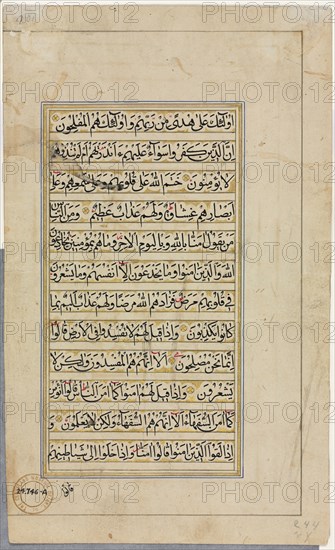 اولئك على هدى من ربهم واولئك هم المفلحون
ان الذين كفروا سواء عليهم ءانذرتهم ام لم تنذرهم
لا يؤمنون ختم الله على قلوبهم وعلى سمعهم وعلى
ابصارهم غشاوة ولهم عذاب عظيم ومن الناس
من يقول امنا بالله وباليوم الاخر وما هم بمؤمنين يخادعون
الله والذين امنوا وما يخدعون الا انفسهم وما يشعرون
في قلوبهم مرض فزادهم الله مرضا ولهم عذاب اليم بما
كانوا يكذبون واذا قيل لهم لا تفسدوا في الارض قالوا
انما نحن مصلحون الا انهم هم المفسدون ولكن لا
يشعرون واذا قيل لهم امنوا كما امن الناس قالوا انؤمن
كما امن السفهاء الا انهم هم السفهاء ولكن لا يعلمون و
اذا لقوا الذين امنوا قالوا امنا واذا خلوا الى شياطينهم
قالوا
PHOTO12